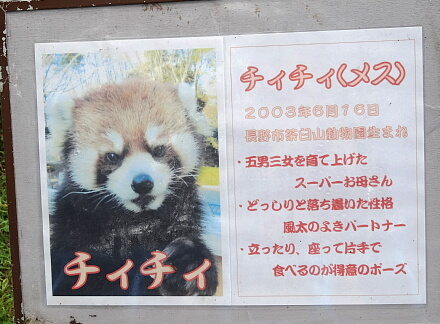 チィチィ
チィチィ(メス)
2003年6月16日
長野市茶臼山動物園生まれ
・五男三女を育て上げた
スーパーお母さん
・どっしりと落ち着いた性格
風太のよきパートナー
・立ったり、座って片手で
食べるのが得意のポーズ